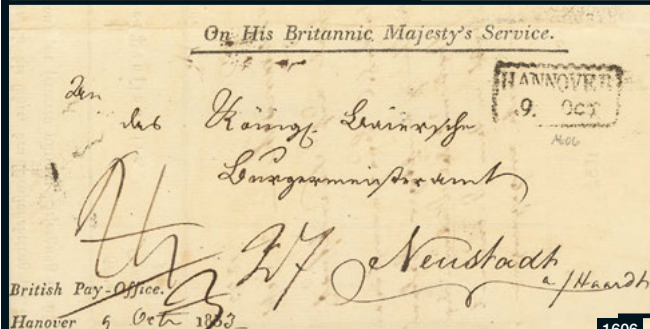 On His Britannic Majesty's Service.
HANNOVER
9. Oct
1606
An
das Königl. Baiersche
Burgermeisteramt
27 Neustadt
a/Haardt
British Pay-Office.
Hanover 9 Octr 1833
1606